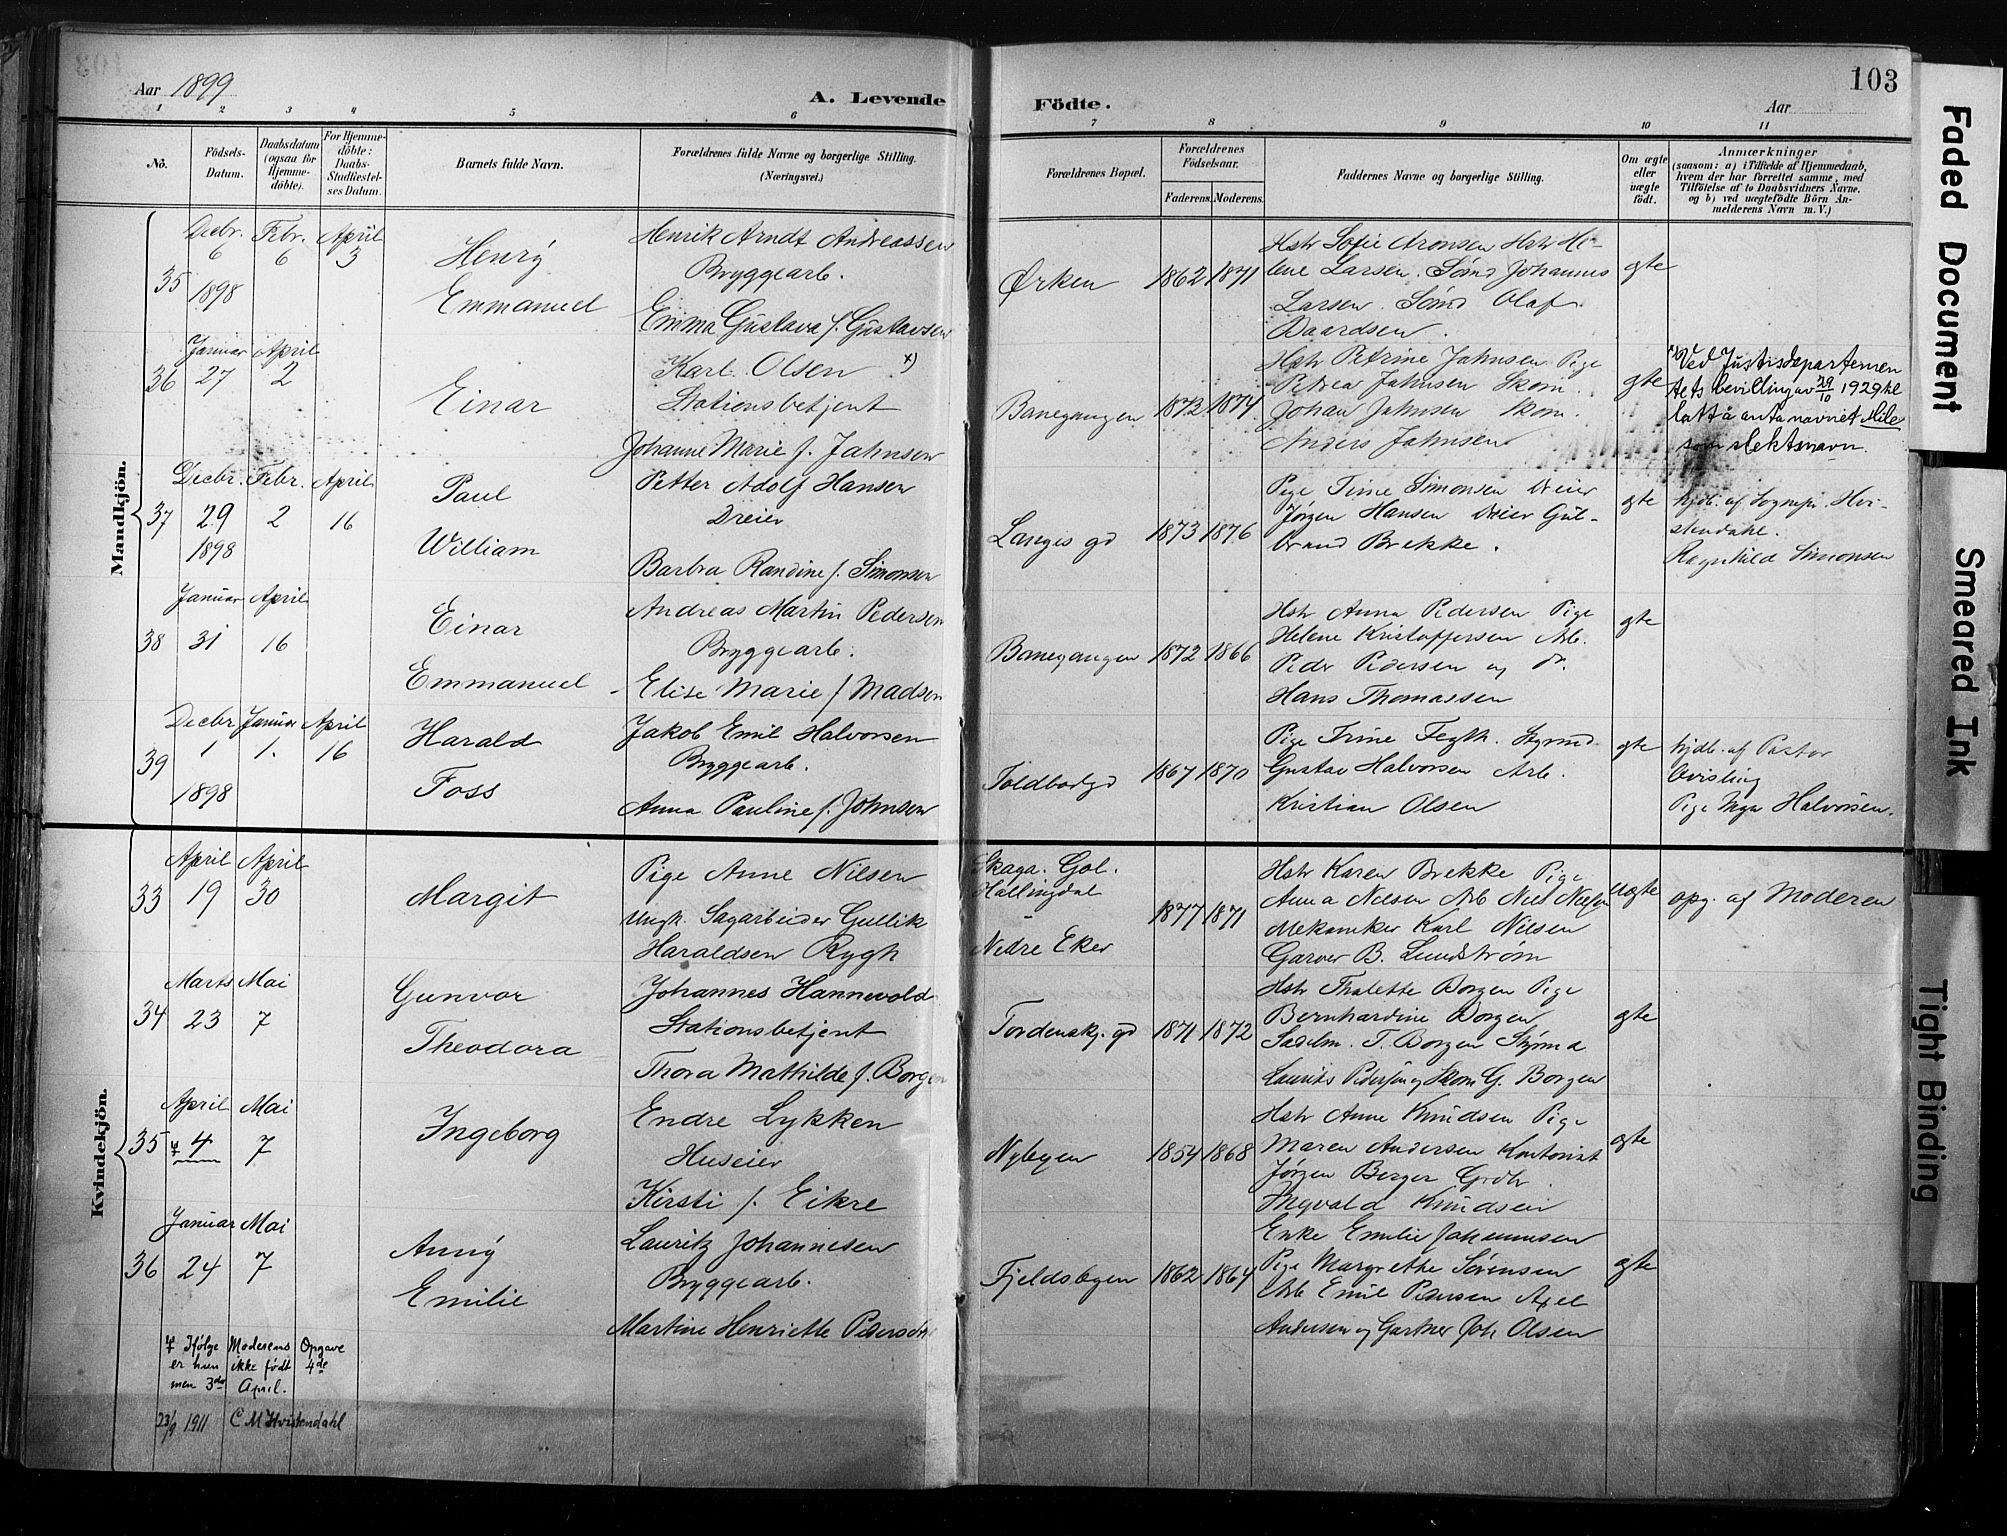 103
Aar 1899
A. Levende Födte.
Aar
1 2 3 4 5 6 7 8 9 10 11
No.
Födsels-Datum.
Daabsdatum (ogsaa for Hjemme-döbte).
For Hjemme-döbte: Daabs-Stadfæstel-ses Datum.
Barnets fulde Navn.
Forældrenes fulde Navne og borgerlige Stilling. (Næringsvei.)
Forældrenes Bopæl.
Forældrenes Födselsaar.
Faderens. Moderens.
Faddernes Navne og borgerlige Stilling.
Om ægte eller uægte födt.
Anmærkninger
(saasom: a) i Tilfælde af Hjemmedaab,
hvem der har forrettet samme, med
Tilföielse af to Daabsvidners Navne.
og b) ved uægtefödte Börn An-
melderens Navn m. V.)
Mandkjön.
35
Decbr. 6 1898
Febr. 6
April 3
Henry
Emmanuel
Henrik Arndt Andreassen
Bryggearb.
Emma Gustava f. Gustavsen
Ørken
1862 1871
Hstr Sofie Aronsen Hstr He-
lene Larsen. Sømd Johannes
Larsen. Sømd Olaf
Baardsen.
ægte
36
Januar 27
April 2
Einar
Karl Olsen x)
Stationsbetjent
Johanne Marie f. Jahnsen
Banegangen
1872 1874
Hstr Petrine Jahnsen Pige
Petrea Jahnsen Skom.
Johan Jahnsen Skom.
Anders Jahnsen
ægte
x) Ved Justisdepartemen
tets bevilling av 29/10 1929 til
latt å anta navnet Mile
som slektsnavn.
37
Decbr. 29 1898
Febr. 2
April 16
Paul
William
Petter Adolf Hansen
Dreier
Barbra Randine f. Simonsen
Langes gd
1873 1876
Pige Trine Simonsen Dreier
Jørgen Hansen Dreier Gul-
brand Brekke.
ægte
hjdb. af Sognepr. Hvi-
stendahl.
Ragnhild Simonsen
38
Januar 31
April 16
Einar
Emmanuel
Andreas Martin Pedersen
Bryggearb.
Elise Marie f. Madsen
Banegangen
1872 1866
Hstr Anna Pedersen Pige
Helene Kristoffersen Arb.
Peder Pedersen og do.
Hans Thomassen
ægte
39
Decbr 1 1898
Januar 1.
April 16
Harald
Foss
Jakob Emil Halvorsen
Bryggearb.
Anna Pauline f. Johnsen
Toldbodgd
1867 1870
Pige Trine Fegth. Styrmd
Gustav Halvorsen Arb.
Kristian Olsen
ægte
hjdb. af Pastor
Qvisling
Pige Inga Halvorsen.
Kvindekjön.
33
April 19
April 30
Margit
Pige Anne Nilsen
Ungk. Sagarbeider Gullik
Haraldsen Rygh
Skaga. Gol.
Hallingdal
Nedre Eker
1877 1871
Hstr Karen Brekke Pige
Anna Nilsen Arb Niels Nilsen
Mekaniker Karl Nilsen
Garver B. Lundstrøm
uægte
opg. af Moderen
34
Marts 23
Mai 7
Gunvor
Theodora
Johannes Hannevold
Stationsbetjent
Thora Mathilde f. Borgen
Tordenskj. gd
1871 1872
Hstr Thalette Borgen Pige
Bernhardine Borgen
Sadelm. T. Borgen Styrmd
Laurits Pedersen og Skom G. Borgen
ægte
35
April ¥ 4
Mai 7
Ingeborg
Endre Lykken
Huseier
Kirsti f. Eikre
Nybyen
1854 1868
Hstr Anne Knudsen Pige
Maren Andersen Kontorist
Jørgen Berger Grdbr.
Ingvald Knudsen
ægte
36
Januar 24
Mai 7
Anny
Emilie
Lauritz Johannesen
Bryggearb.
Martine Henriette Pedersdtr
Fjeldsbyen
1862 1864
Enke Emilie Johannesen
Pige Margrethe Sørensen
Arb Emil Pedersen Axel
Andersen og Gartner Joh Olsen
ægte
¥ Ifølge Moderens Opgave
er hun ikke født 4de
men 3die April.
23/9 1911 C M Hvistendahl
Faded Document
Smeared Ink
Tight Binding